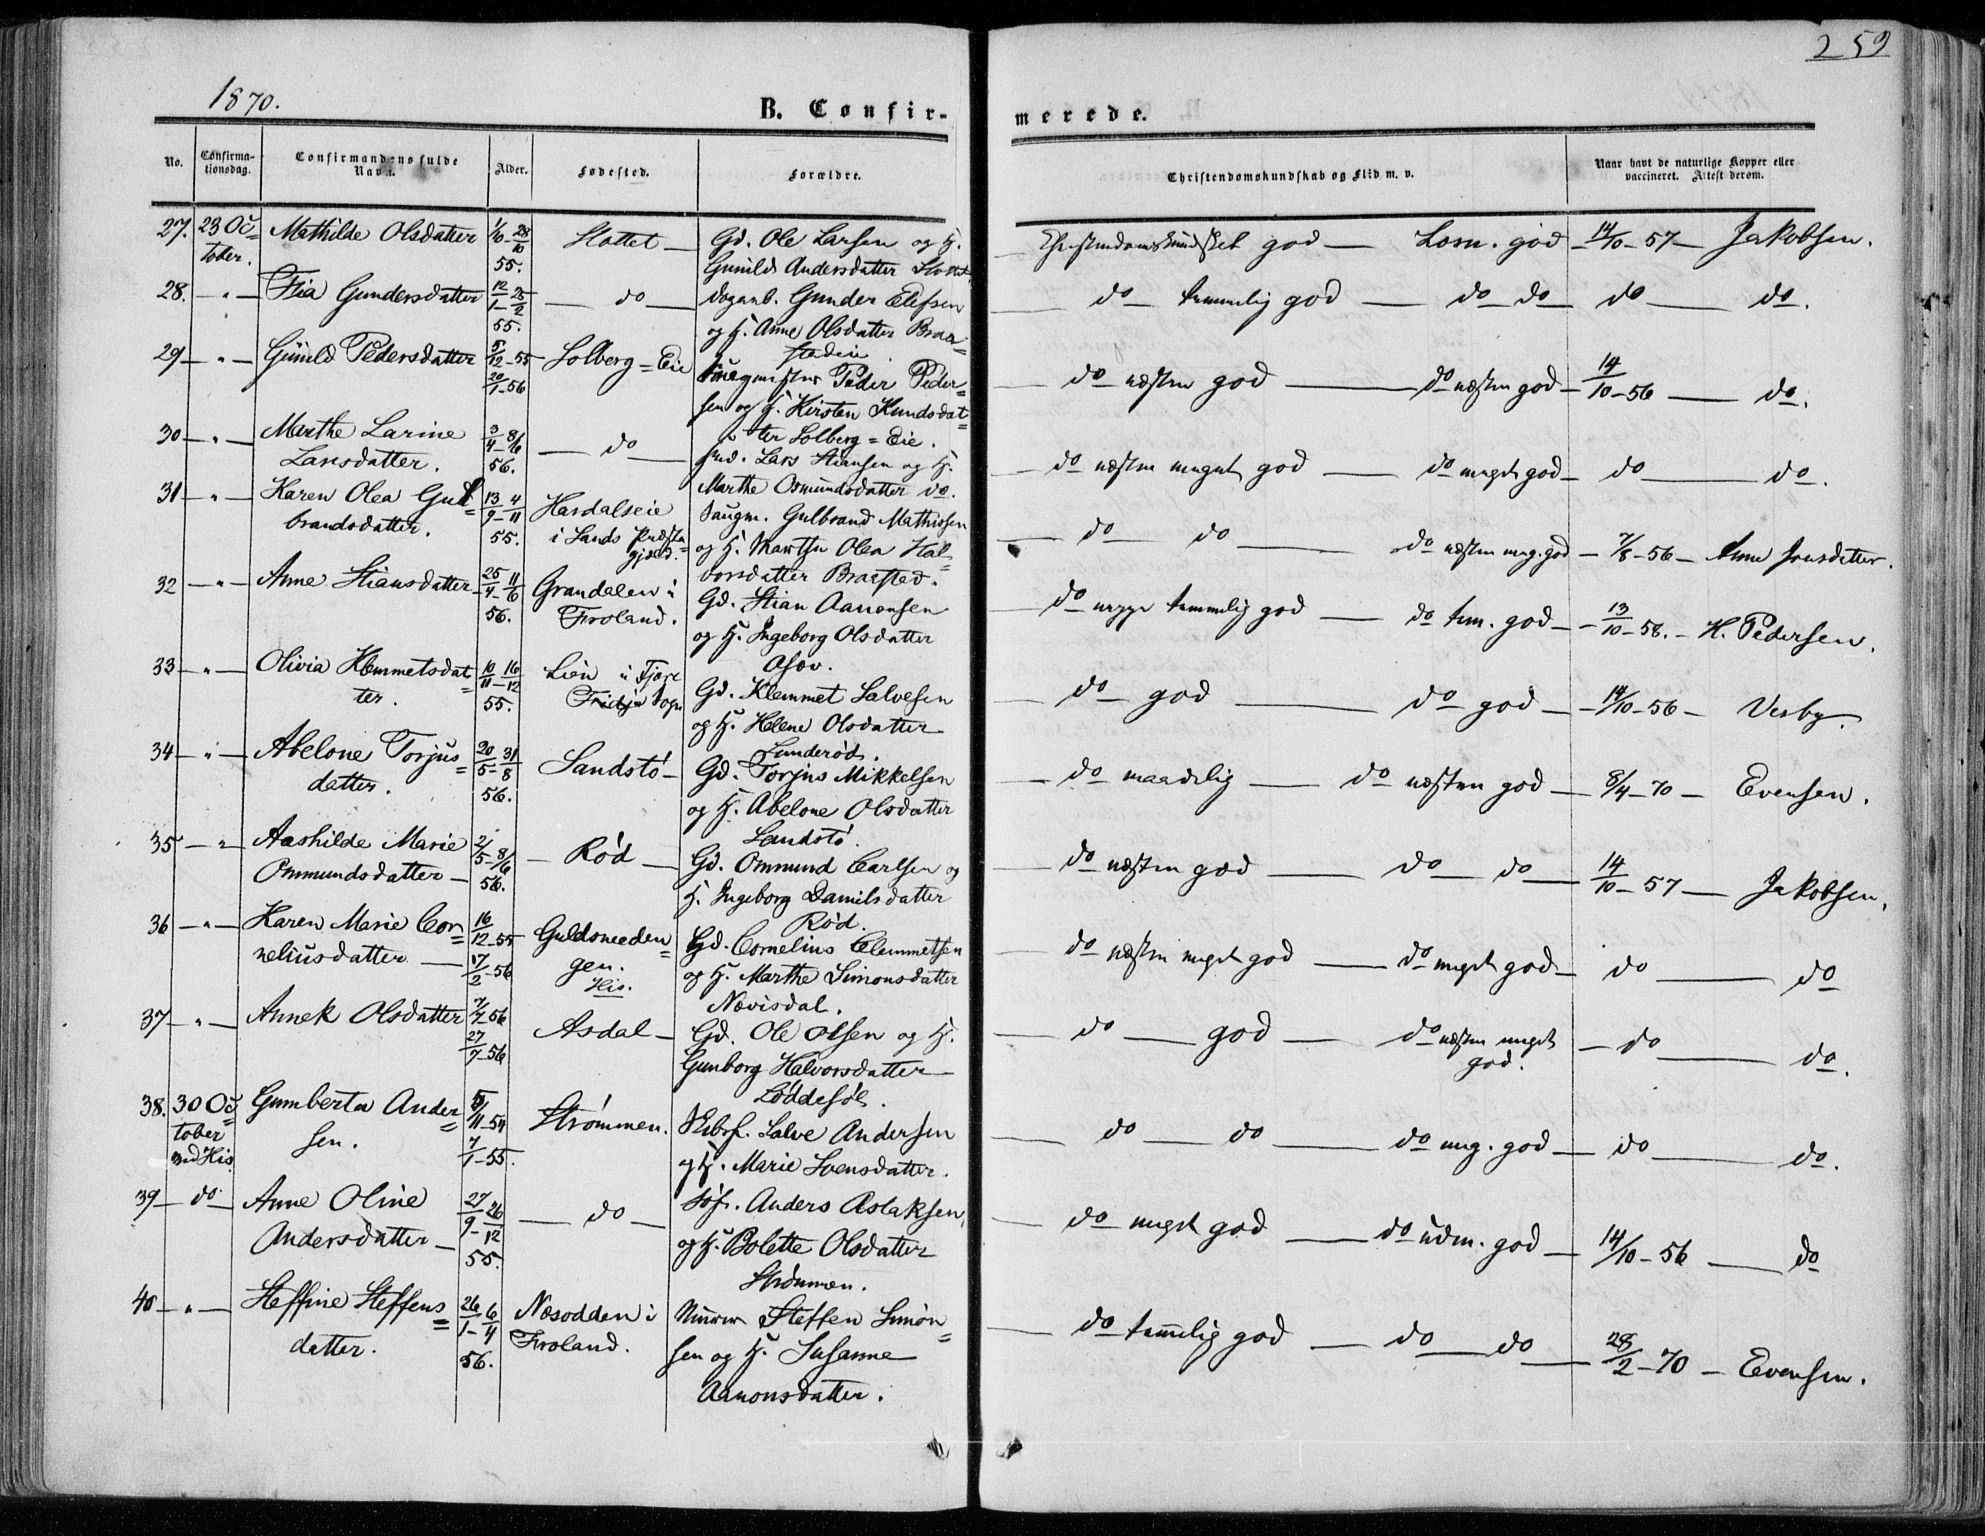 259
1870.
B. Confir-
merede.
No.
Confirma-
tionsdag.
Confirmandens fulde
Navn.
Alder.
Fødested.
Forældre.
Christendomskundskab og Flid m. v.
Naar havt de naturlige Kopper eller
vaccineret. Attest derom.
27. 23 Oc= Mathilde Olsdatter 28/10 Slottet — Gd. Ole Larsen og H. god — Losn. god — 14/10 - 57 — Jakobsen.
tober. 55. Gunild Andersdatter
28. — " — Gundersdatter 12/1 - 25/2 — do — Gunder Elefsen — do temmelig god — do do — do — do.
55. og H. Anne Olsdatter Braa=
stadeie
29 — " — Gunild Pedersdatter 5/12 - 55 Solberg = Eie Peder Peder= — do næsten god — do næsten god — 14/10 - 56 — do.
20/1 - 56 sen og H. Kirsten Knudsdat=
ter Solberg = Eie.
30 — " — Marthe Larine 3/4 - 8/6 — do — Lars Stiansen og H. — do næsten meget god — do meget god — do — do.
Larsdatter. 56. Marthe Osmundsdatter do.
31 — " — Karen Olea Gul= 13/9 - 4/11 Hardalseie Saugm. Gulbrand Mathissen — do do — do næsten meg. god — 7/8 - 56 — Anne Jensdatter.
brandsdatter. 55. i Lands Præste= og H. Marthe Olea Hal=
gjæld. vorsdatter Braastad.
32 — " — Anne Stiansdatter 25/4 - 11/6 Grandalen i Gd. Stian Aanonsen — do neppe temmelig god — do tem. god — 13/10 - 58. — H. Pedersen.
56. Froland. og H. Ingeborg Olsdatter
Asæv.
33 — " — Olivia Klemmetsdat= 10/11 - 16/12 Lien i Fjære Gd. Klemmet Salvesen — do god — do god — 14/10 - 56 — Vesby.
ter. 55. Sogn og H. Helene Olsdatter
Lunderød.
34 — " — Abelone Torjus= 20/5 - 31/8 Sandstö — Gd. Torjus Mikkelsen — do maadelig — do næsten god — 8/4 - 70 — Evensen.
datter. 56. og H. Abelone Olsdatter
Sandstö.
35 — " — Aashilde Marie 2/5 - 8/6 — Rød — Gd. Ommund Carlsen og — do næsten god — do do — 14/10 - 57 — Jakobsen.
Ommundsdatter — 56. H. Ingeborg Danielsdatter
Rød.
36 — " — Karen Marie Cor= 16/12 - 55 Guldsmeden= Gd. Cornelius Clemmetsen — do næsten meget god — do meget god — do — do
neliusdatter — 17/2 - 56 gen. og H. Marthe Simonsdatter
His. Nævisdal.
37 — " — Annek Olsdatter 7/4 - 56 Asdal — Gd. Ole Olsen og H. — do — god — do næsten meget — do — do.
27/7 - 56 Gunborg Halvorsdatter god.
Løddesøl.
38. 30 Oc= Gumberta Ander= 5/11 - 54 Strømmen. Skibsf. Salve Andersen — do — do — do meg. god — do — do.
tober sen. 7/1 - 55. og H. Marie Svensdatter.
ved His
39 — do — Anne Oline 27/9 - 26/12 — do — Søf. Anders Aslaksen, — do meget god — do udm. god — 14/10 - 56 — do
Andersdatter — 55. og H. Bolette Olsdatter
Strømmen.
40 — " — Steffine Steffens= 26/1 - 6/4 Næsodden i Steffen Simon= — do temmelig god — do — do — 28/2 - 70 — Evensen.
datter. 56. Froland. sen og H. Susanne
Aanonsdatter.